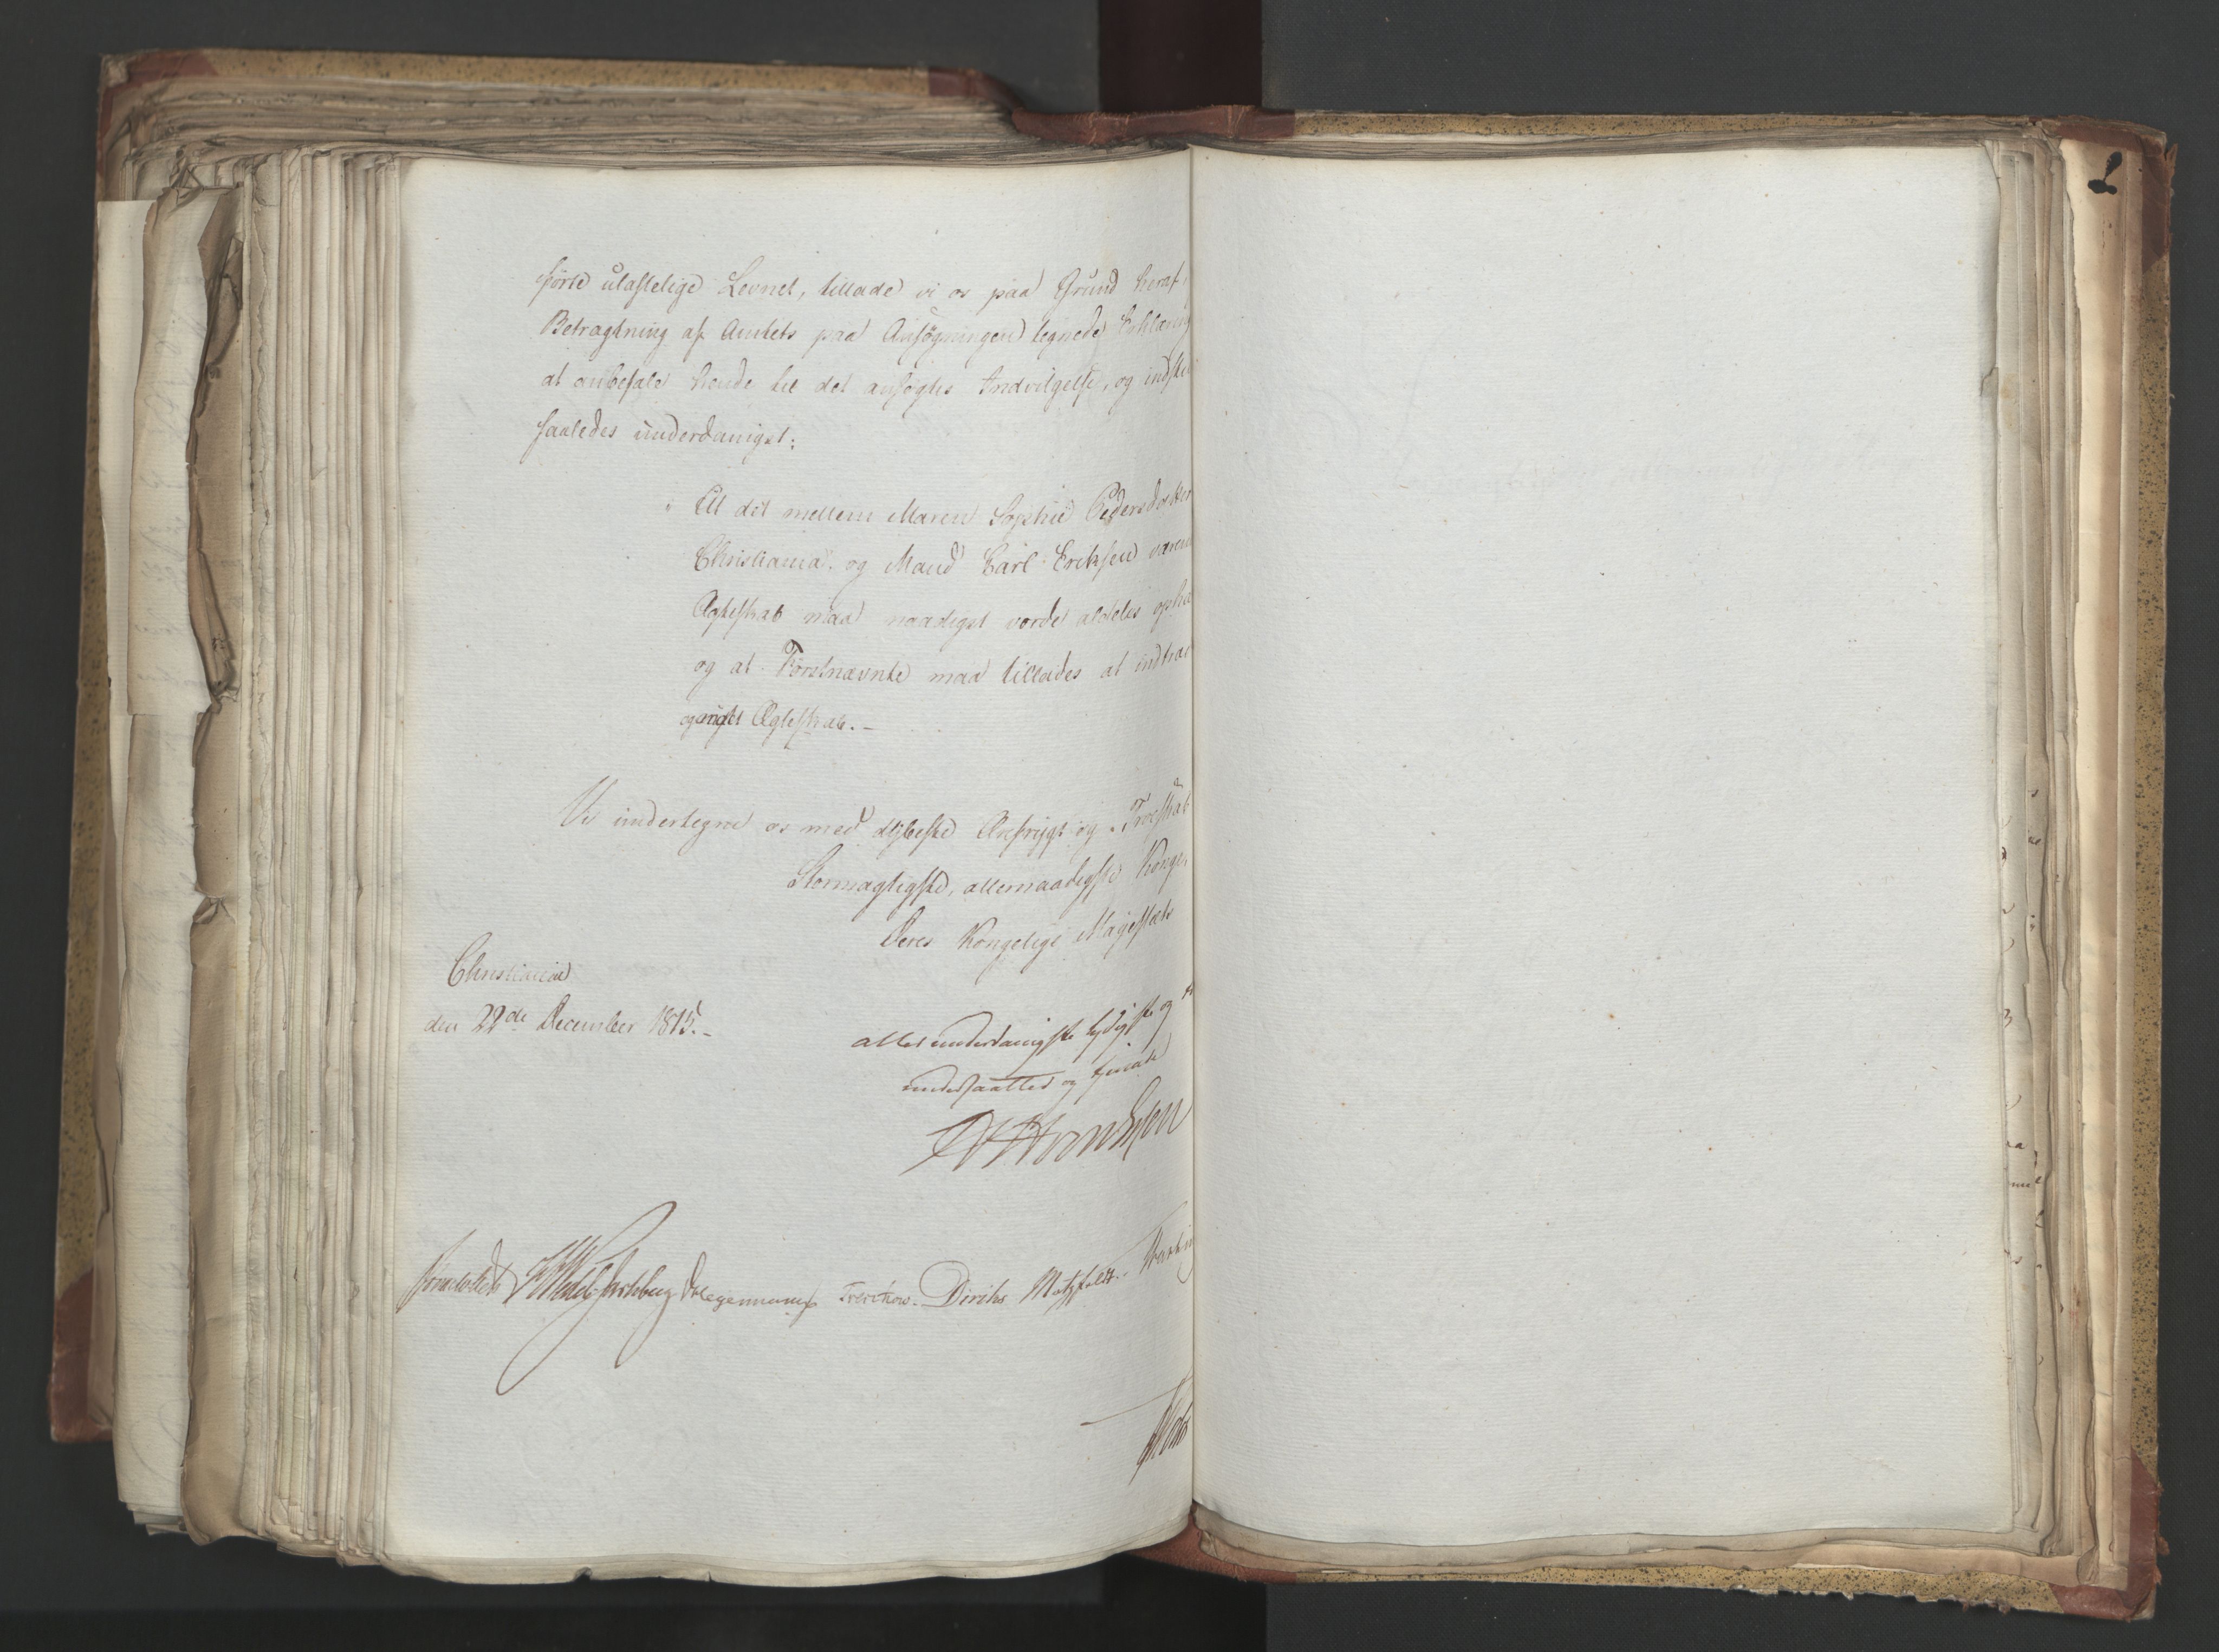 förte ulastelige Levnet, tillade vi os paa Grund heraf
Betragtning af Amtets paa Ansøgningen tegnede Erklæring
at anbefale hende til det ansøgtes Indvilgelse, og indstil
saaledes underdanigst:
" At det mellem Maren Sophie Pedersdatter
Christiania og Mand Carl Eriksen værend
Ægteskab maa naadigst vorde aldeles ophæ
og at Førstnævnte maa tillades at indtræ
nyt Ægteskab. -
Vi undertegne os med dybeste Ærefrygt og Troeskab
Stormægtigste, allernaadigste Konge.
Deres Kongelige Majestæts
Christiania
den 22de December 1815. -
allerunderdanigste lydigste og
undersaatter og tjenere
Sommerhielm Wedel Jarlsberg Krogh
Treschow. Diriks Motzfeldt.